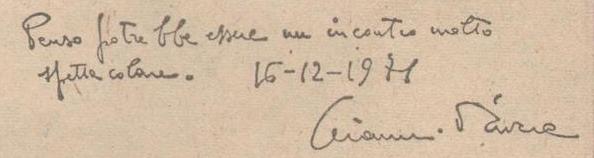 Penso potrebbe essere un incontro molto
spettacolare. 16-12-1971
Gianni